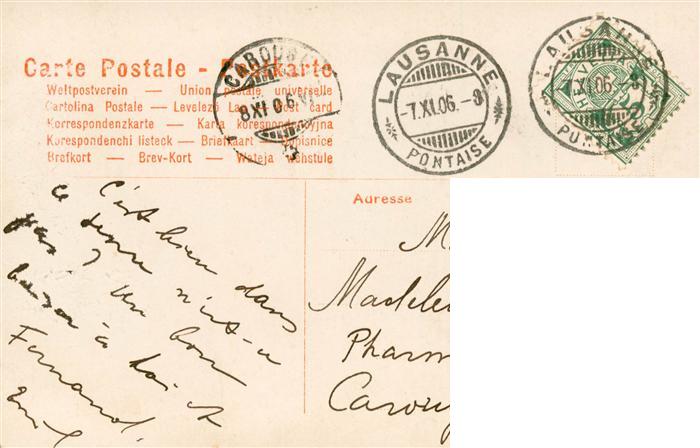 Carte Postale - Postkarte
Weltpostverein — Union postale universelle
Cartolina Postale — Levelező Lap — Post card
Korrespondenzkarte — Karta korespondencyjna
Korespondenchi listeck — Briefkaart — Dopisnice
Brefkort — Brev-Kort — Wateja
CAROUGE
8 XI 06
LAUSANNE
-7.XI.06.-8
PONTAISE
LAUSANNE
7.XI.06.-8
PONTAISE
Adresse
C'est bien dans
ce
pas ? Un bon
baiser à toi &
Fernand.
Emil
M
Madele
Pharm
Caroug